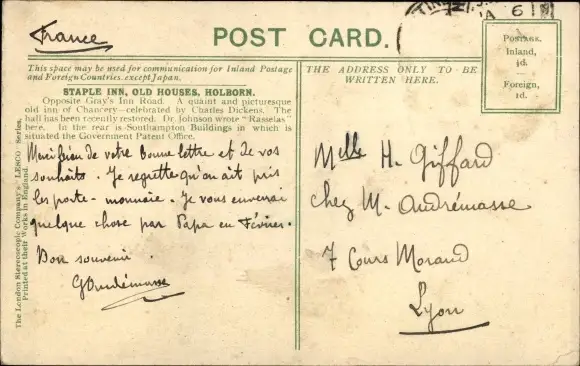 France
POST CARD.
6
POSTAGE.
Inland,
½d.
Foreign,
1d.
This space may be used for communication for Inland Postage
and Foreign Countries, except Japan.
THE ADDRESS ONLY TO BE
WRITTEN HERE.
STAPLE INN, OLD HOUSES, HOLBORN.
Opposite Gray's Inn Road. A quaint and picturesque
old inn of Chancery—celebrated by Charles Dickens. The
hall has been recently restored. Dr. Johnson wrote "Rasselas"
here. In the rear is Southampton Buildings in which is
situated the Government Patent Office.
Merci bien de votre bonne lettre et de vos
souhaits. Je regrette qu'on ait pris
les porte-monnaie. Je vous enverrai
quelque chose par Papa en Février.
Bon souvenir
GAndrémasse
Melle H. Giffard
chez M. Andrémasse
7 Cours Morand
Lyon
The London Stereoscopic Company's "LESCO" Series.
Printed at their Works in England.